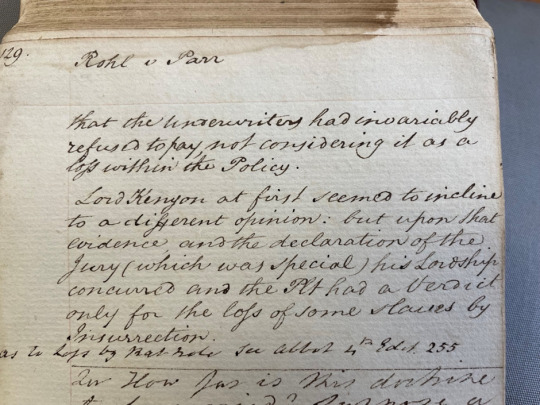 129.
Rohl v Parr
that the Underwriters had invariably
refused to pay not considering it as a
loss within the Policy.
Lord Kenyon at first seemed to incline
to a different opinion: but upon that
evidence, and the declaration of the
Jury (which was special) his Lordship
concurred and the Plt had a Verdict
only for the loss of some slaves by
Insurrection.
as to Loss by that mode See Abbot 4th Edit. 255
Qu How far is this doctrine